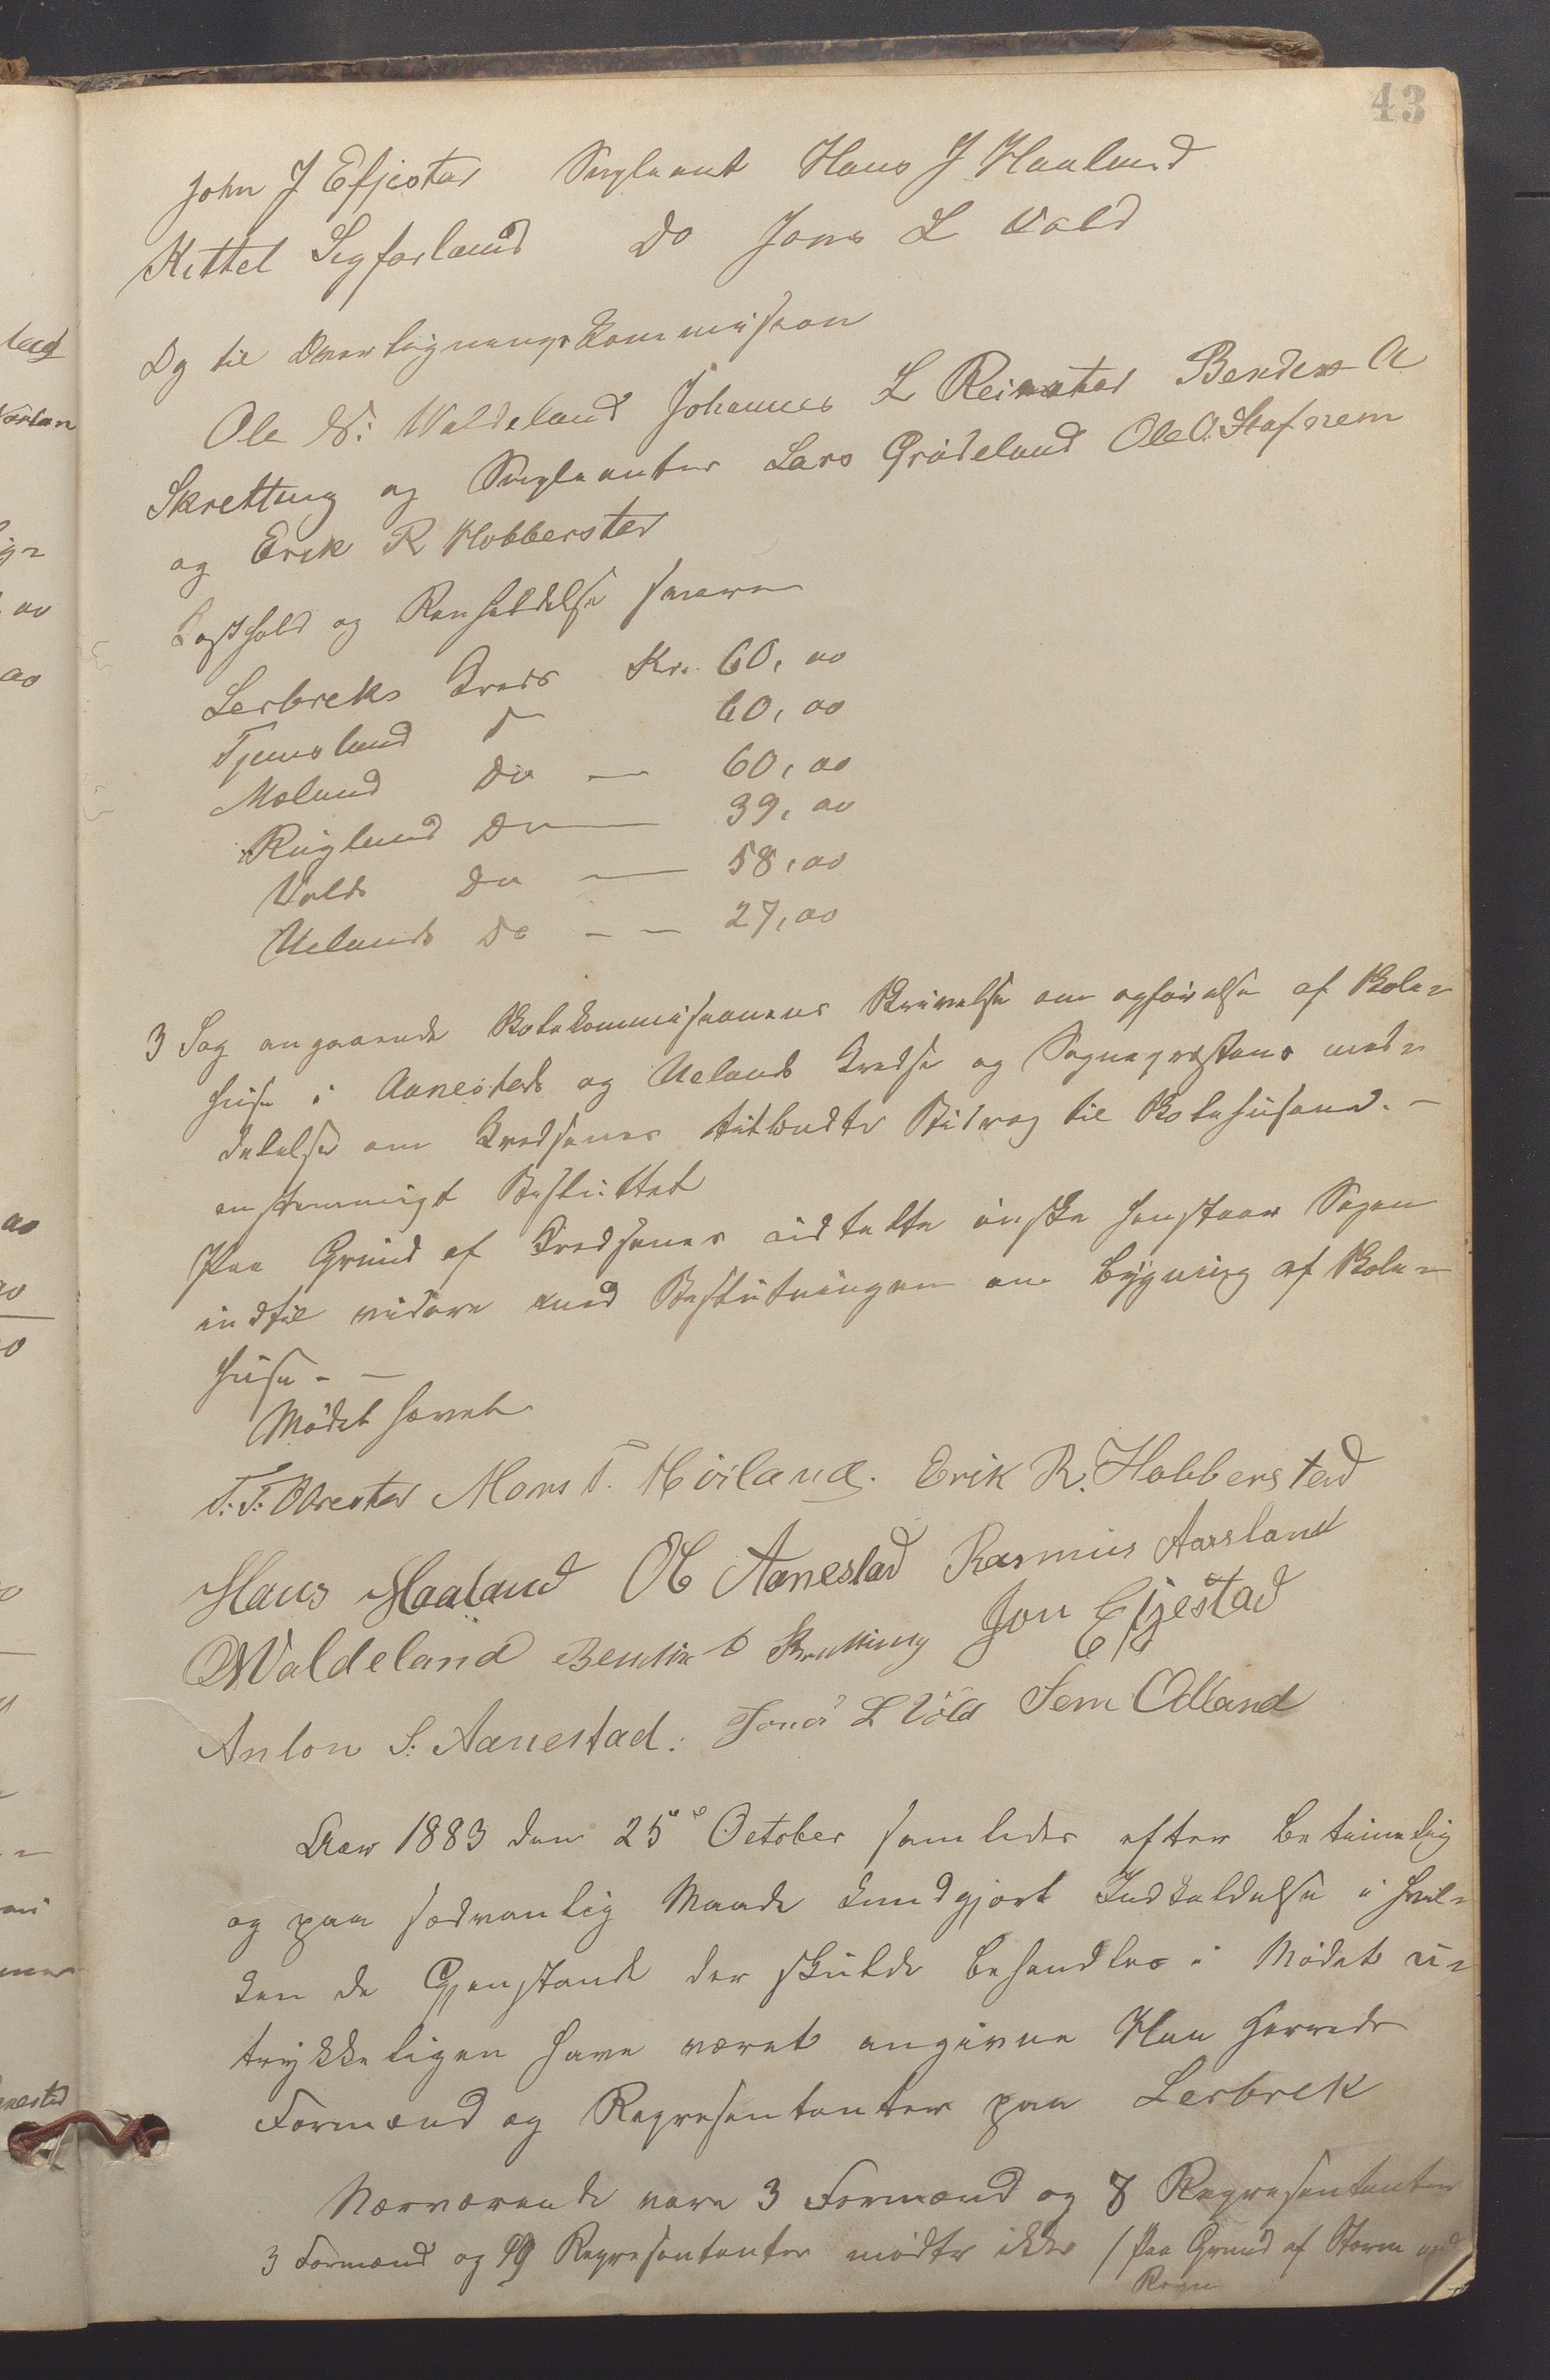 43
John J Efjestad Supleant Hans J Haaland
Kittel Sigfarland Do Jons L Vold
Og til Overligningskommission
Ole N: Valdeland Johannes L Reimestad Bendix A
Skretting og Supleanter Lars Grødeland Ole O. Stafnem
og Erik R Hobberstad
Losthold og Renholdelse saavæ
Lerbreks Kreds Kr. 60, oo
Tjemsland 60, oo
Moland Do — 60, oo
Riigland Do — 39, oo
Volds Do — 58, oo
Uelands Do — — 27, oo
3 Sag angaaende Skolekommissionens Skrivelse om opførelse af Skole=
huse i Aanestads og Uelands Kredse og Sognepræstens med=
delelse om Kredsenes tilbudte Bidrag til Skolehusene. —
enstemmigt Besluttet
Paa Grund af Kredsenes udtalte ønske henstaar Sagen
indtil videre med Beslutningen om bygning af Skole=
huse. —
Mødet hævet
T: T: Obrestad Mons T. Høiland. Erik R. Hobberstad
Hans Haaland O C Aanestad Rasmus Aarsland
O N Valdeland Bendix A Skretting Jon Efjestad
Anton S: Aanestad: Jonas L Vold Sem Odland
Aar 1883 den 25de October samledes efter betimelig
og paa sædvanlig Maade kundgjort Indkaldelse i hvil=
ken de Gjenstande der skulde behandles i Mødet u=
trykkeligen have været angivne Haa herreds
Formænd og Repræsentanter paa Lerbrek
Nærværende vare 3 Formænd og 8 Repræsentanter
3 Formænd og 9 Repræsentanter mødte ikke / Paa Grund af Storm og
Regn